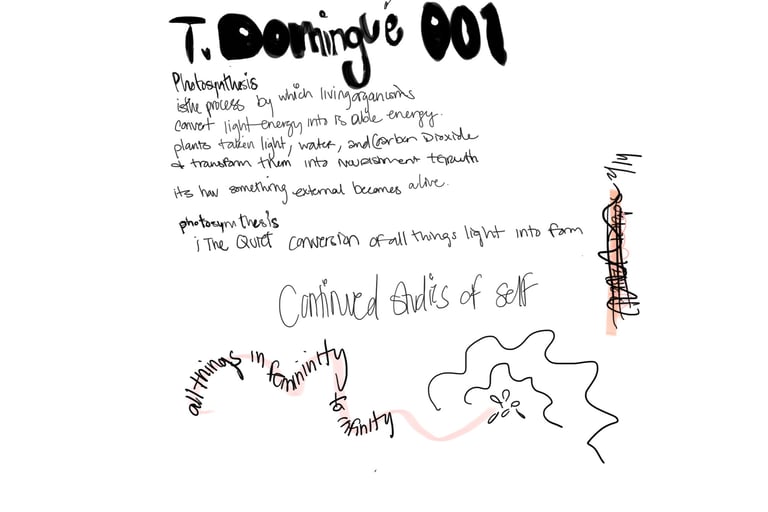 T. Domingué 001
Photosynthesis
is the process by which living organisms
convert light energy into is able energy.
plants taken light, water, and Carbon Dioxide
& transform them into nourishment + growth
its how something external becomes alive.
photosynthesis
: The Quiet conversion of all things light into form
Continued studies of self
all things in femininity
to infinity